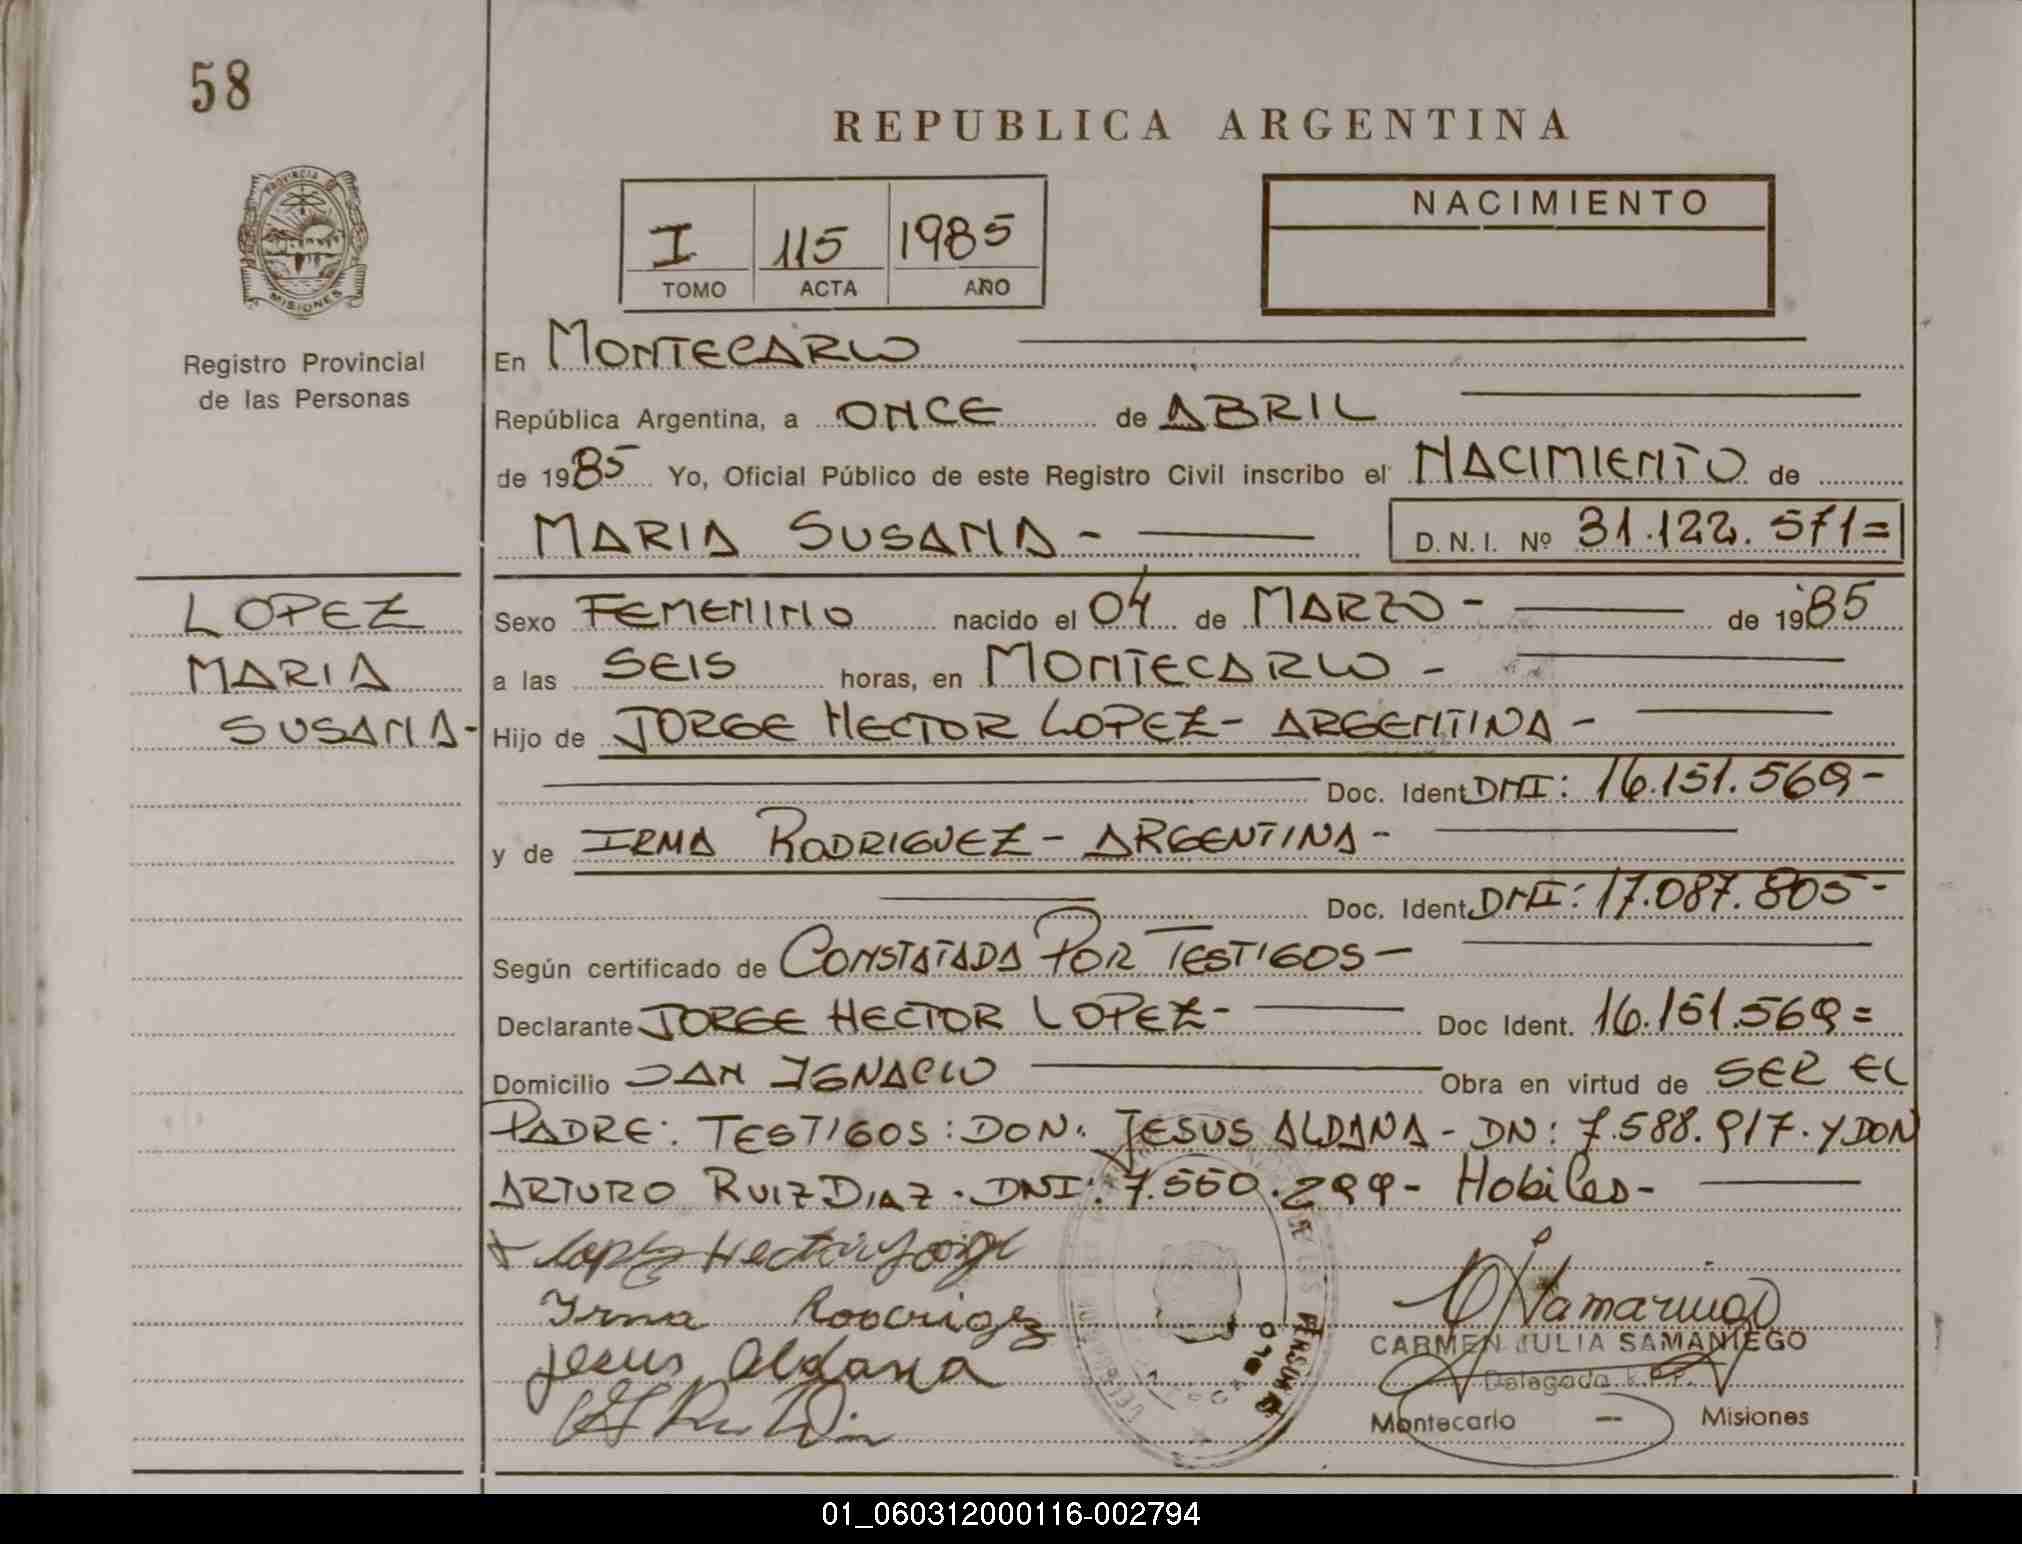 58
REPUBLICA ARGENTINA
PROVINCIA DE
MISIONES
I 115 1985
TOMO ACTA AÑO
NACIMIENTO
Registro Provincial
de las Personas
En MONTECARLO
República Argentina, a ONCE de ABRIL
de 1985 Yo, Oficial Público de este Registro Civil inscribo el NACIMIENTO de
MARIA SUSANA - D. N. I. Nº 31.122.571=
LOPEZ
MARIA
SUSANA-
Sexo FEMENINO nacido el 04 de MARZO - de 1985
a las SEIS horas, en MONTECARLO -
Hijo de JORGE HECTOR LOPEZ - ARGENTINA -
Doc. Ident DNI: 16.151.569-
y de IRMA RODRIGUEZ - ARGENTINA -
Doc. Ident. DNI: 17.087.805-
Según certificado de CONSTATADA POR TESTIGOS -
Declarante JORGE HECTOR LOPEZ - Doc Ident. 16.151.569=
Domicilio SAN IGNACIO Obra en virtud de SER EL
PADRE: TESTIGOS: DON. JESUS ALDANA - DN: 7.588.917. Y DON
ARTURO RUIZ DIAZ. DNI: 7.550.299- Hobiles-
Lopez Hector Jorge
Irma Rodrigez
Jesus Aldana
CARMEN JULIA SAMANIEGO
Delegada R.P.P.
Montecarlo - Misiones
01_060312000116-002794